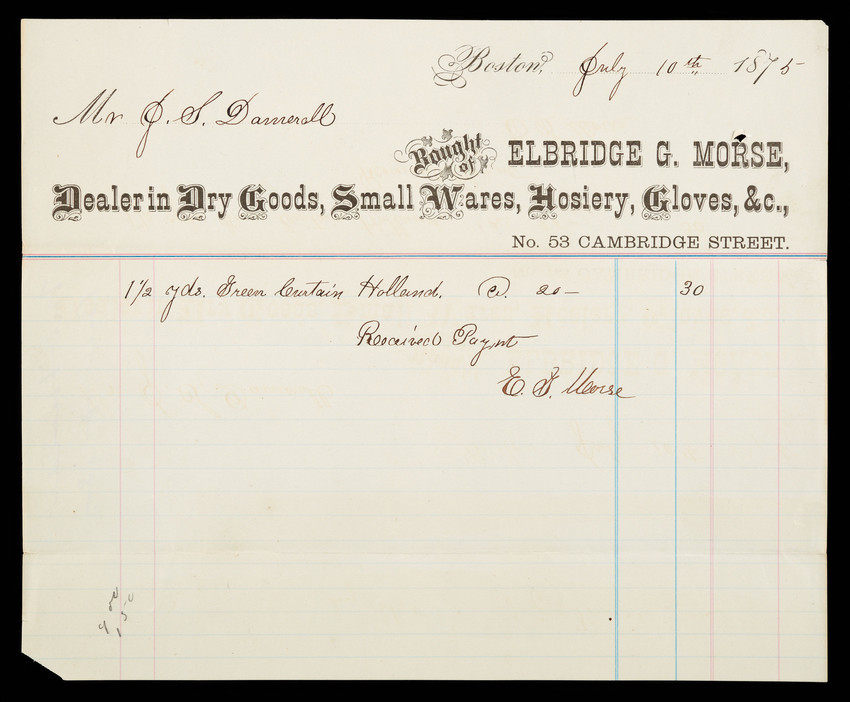 Boston, July 10th 1875
Mr J. S. Damerall
Bought of ELBRIDGE G. MORSE,
Dealer in Dry Goods, Small Wares, Hosiery, Gloves, &c.,
No. 53 CAMBRIDGE STREET.
1 1/2 yds. Green Curtain Holland. @. 20 — 30
Received Paymt
E. G. Morse